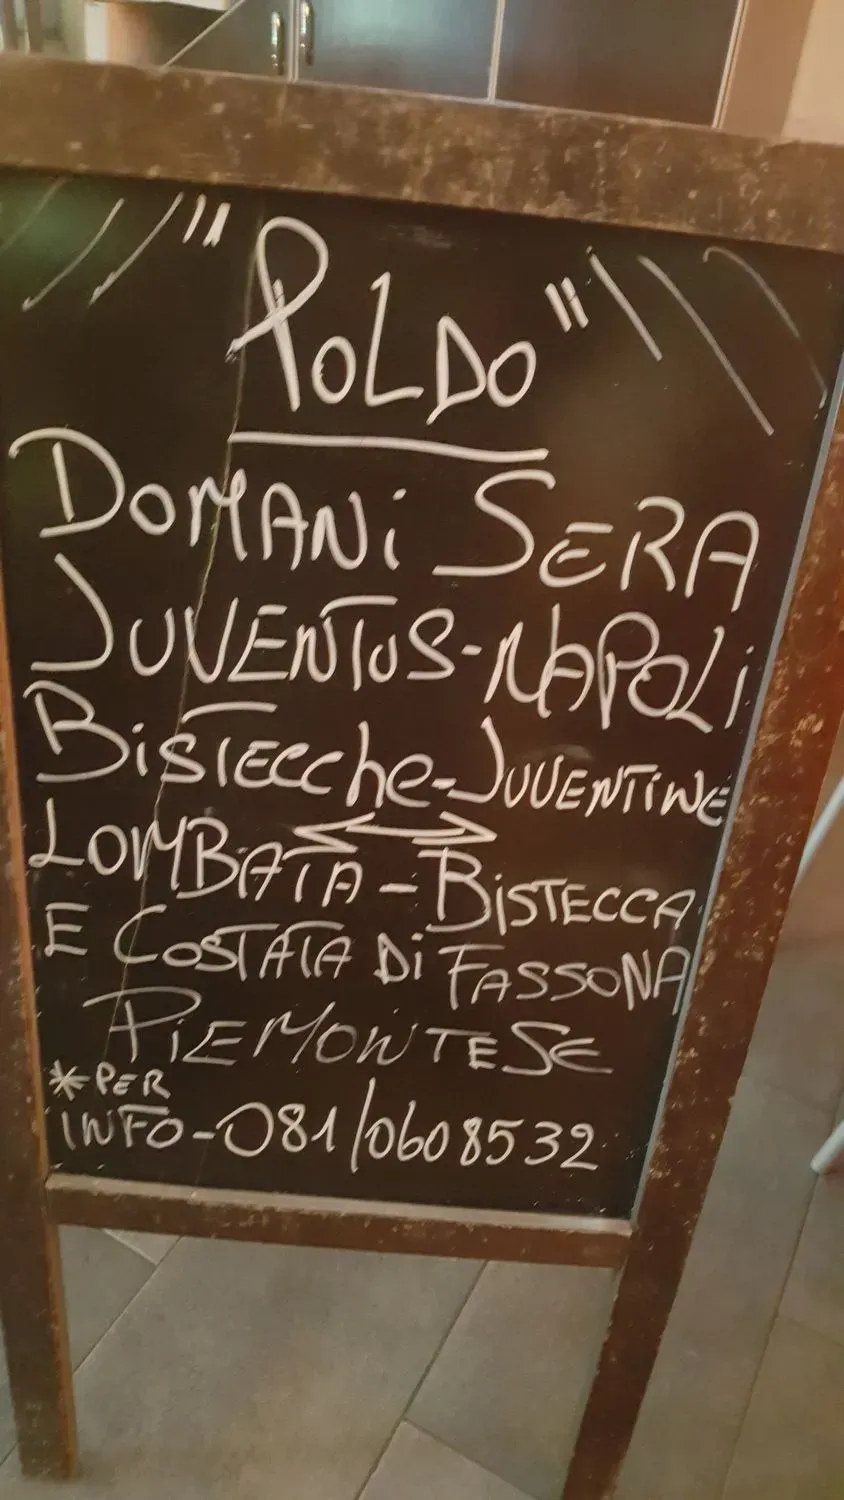 "POLDO"
DOMANi SERA
JUVENTUS-NAPOLi
BiSTECChe-JUVENTiNE
LOMBATA-BiSTECCA
E COSTATA Di FASSONA
PiEMONTESE
*PER
INFO-081/0608532